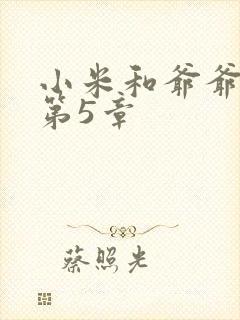 小米和爷爷
第5章
蔡照光